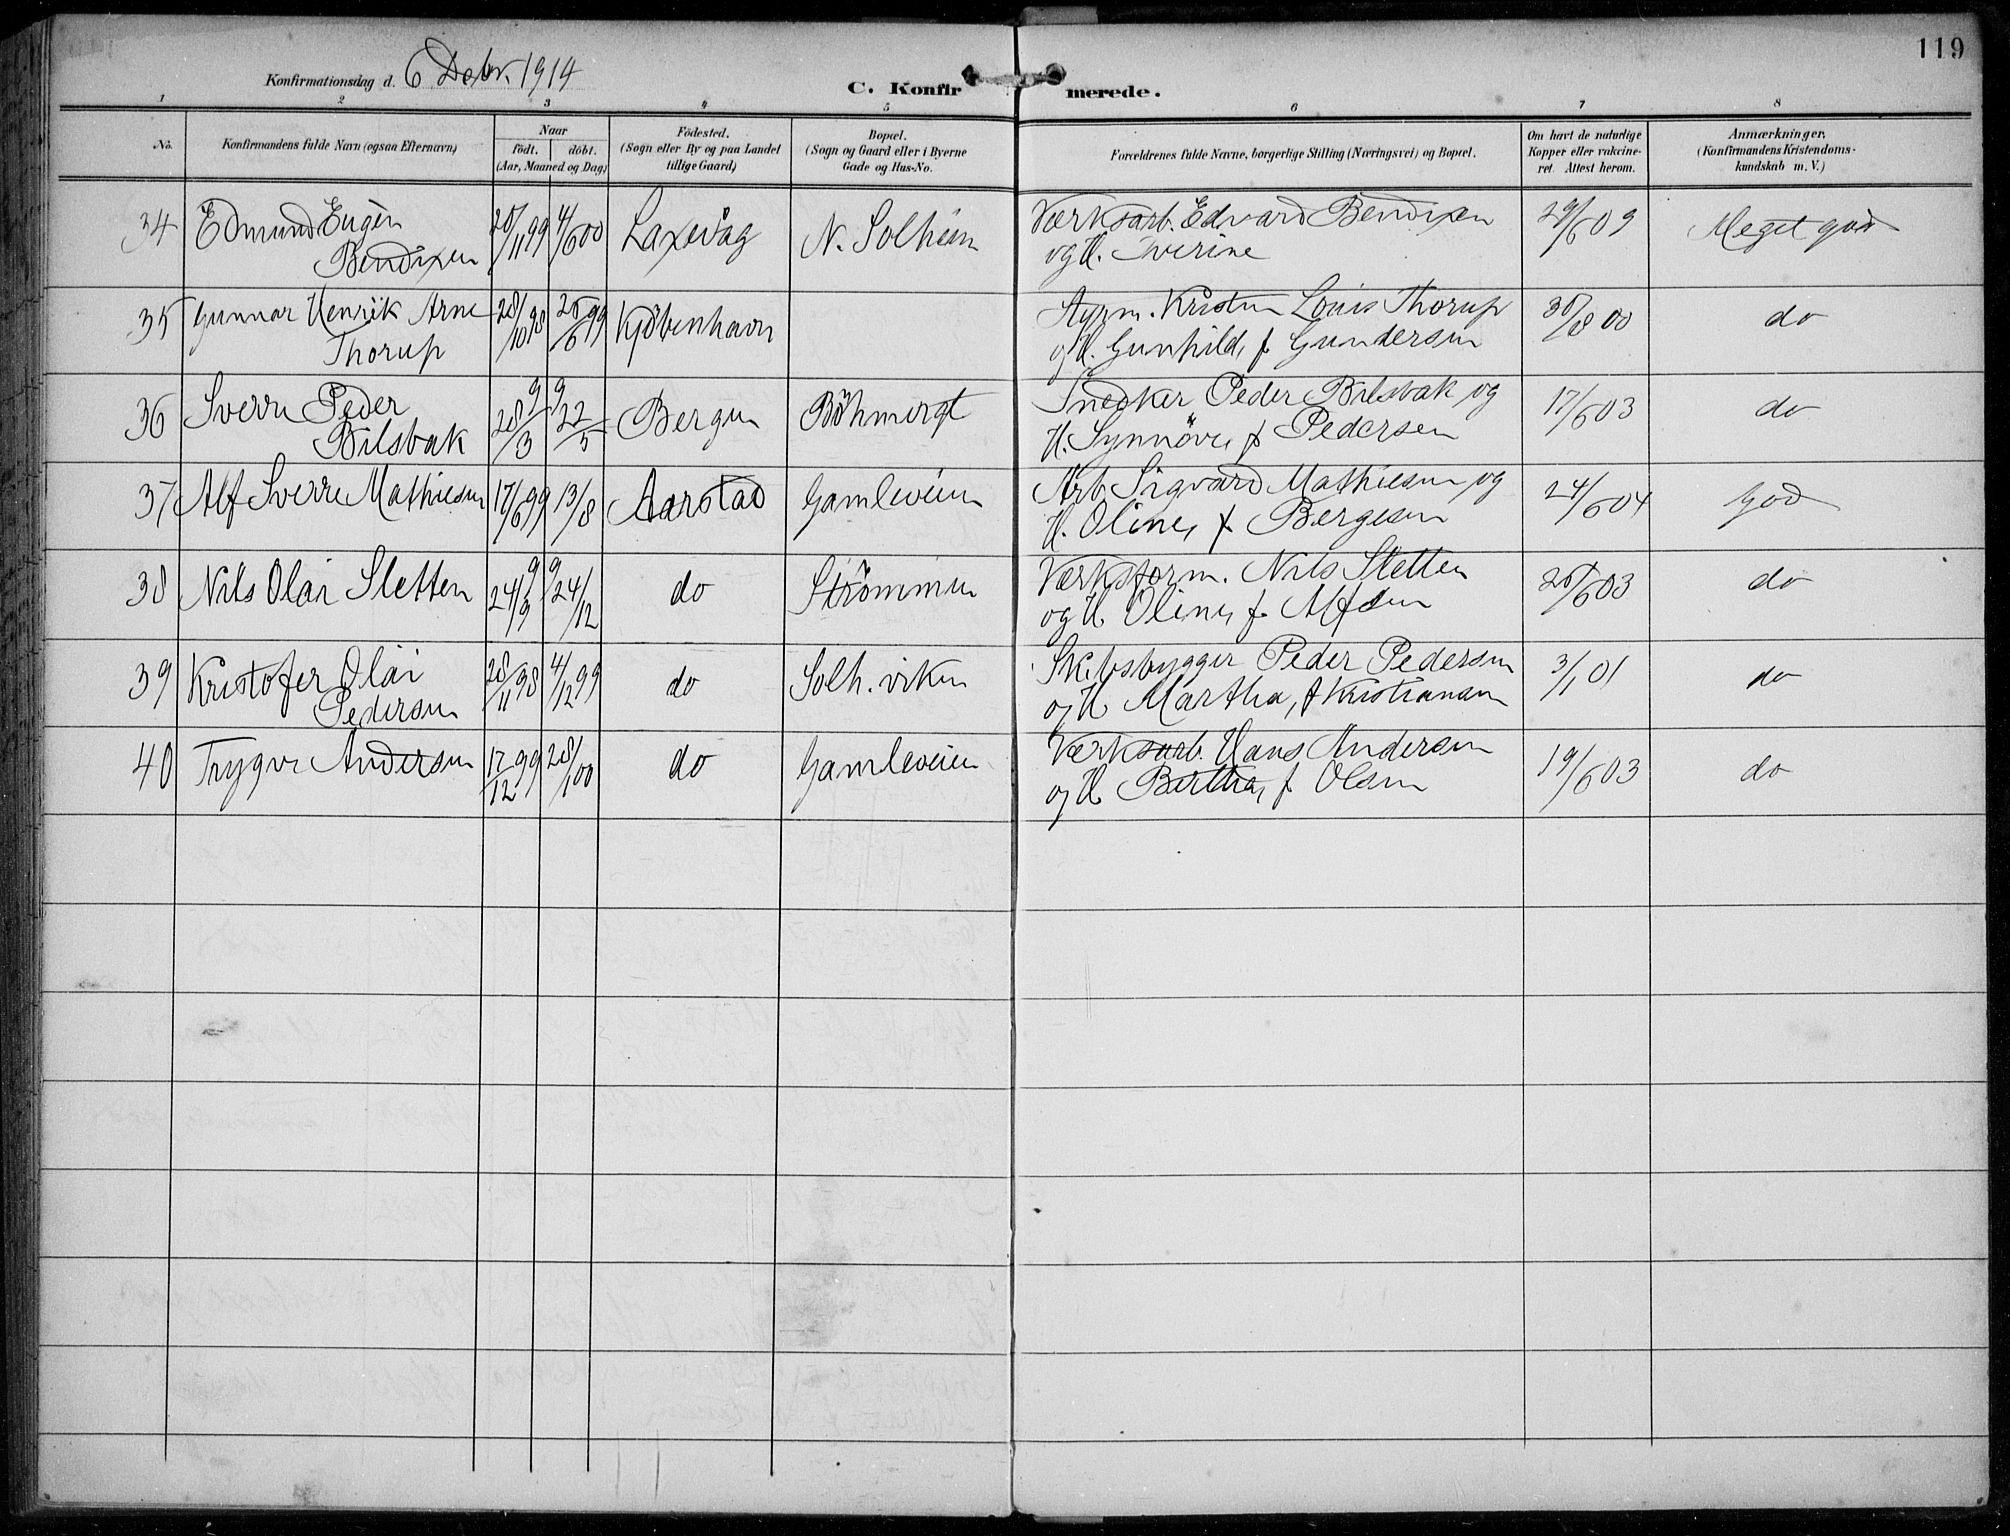 119
Konfirmationsdag d. 6 Debr. 1914
C. Konfirmerede.
1 2 3 4 5 6 7 8
No. Konfirmandens fulde Navn (ogsaa Efternavn) Naar født. døbt. (Aar, Maaned og Dag) Födested. (Sogn eller By og paa Landet tillige Gaard) Bopæl. (Sogn og Gaard eller i Byerne Gade og Hus-No. Forældrenes fulde Navne, borgerlige Stilling (Næringsvei) og Bopæl. Om havt de naturlige Kopper eller vakcineret. Attest herom. Anmærkninger, (Konfirmandens Kristendomskundskab m. V.)
34 Edmund Eugèn 20/11 99 4/6 00 Laxevåg N. Solheim Værksarb. Edvard Bendixen 29/6 09 Meget god
Bendixen og H. Iverine
35 Gunnar Henrik Arne 28/10 98 25/6 99 Kjøbenhavn Styrm. Kristen Louis Thorup 30/8 00 do
Thorup og H. Gunhild, f Gundersen
36 Sverre Peder 99 28/3 22/5 Bergen Böhmergt Snedker Peder Bilsbak og 17/6 03 do
Bilsbak H. Synnöve, f Pedersen
37 Alf Sverre Mathiesen 17/6 99 13/8 Aarstad Gamleveien Arb. Sigvard Mathiesen og 24/6 04 God
H. Oline, f. Bergesen
38 Nils Olai Sletten 99 24/9 24/12 do Strömmen Værksform. Nils Sletten 26/6 03 do
og H Oline, f. Alfsen
39 Kristofer Olai 28/11 98 4/12 99 do Solh. viken Skibsbygger Peder Pedersen 3/1 01 do
Pedersen og H Martha, f Kristiansen
40 Trygve Andersen 17/12 99 28/1 00 do Gamleveien Værksarb. Hans Andersen 19/6 03 do
og H Bertha, f Olsen